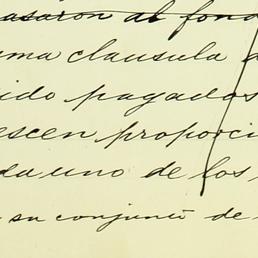 asaron al fond
ma clausula d
ido pagados
escen proporci
da uno de los
su conjunto de